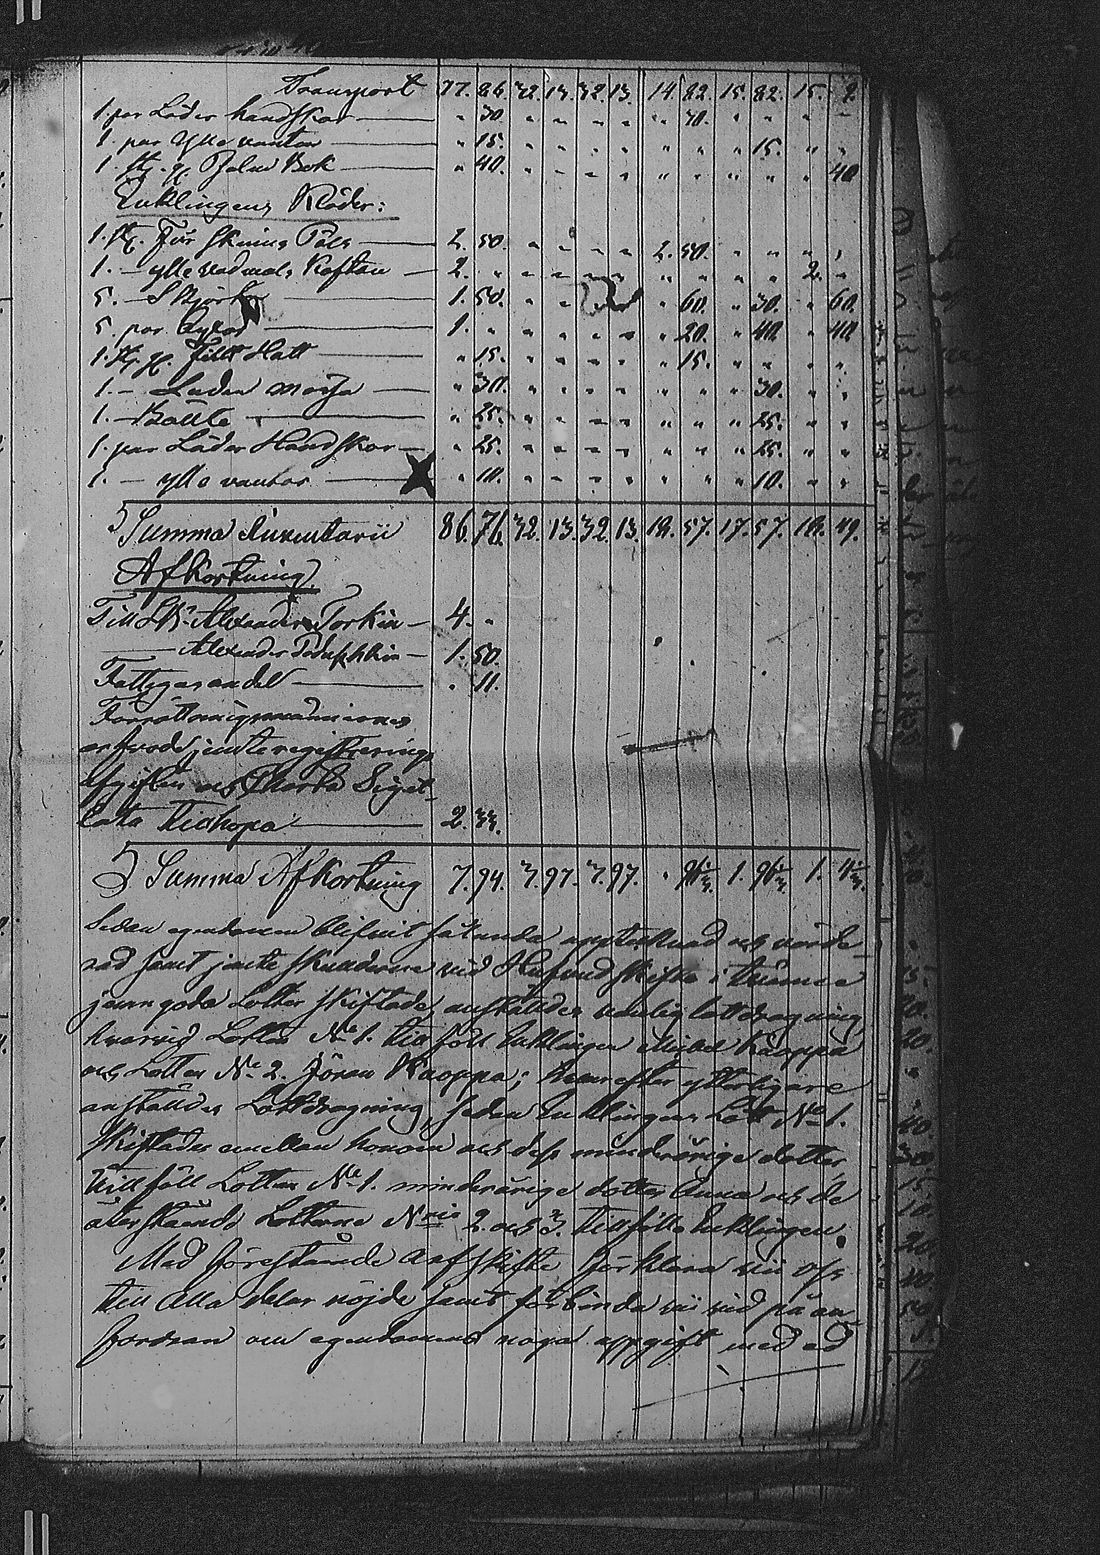 Transport 77. 86. 32. 13. 32. 13. 14. 82. 15. 82. 15. 9.
1. par Läder handskar — " 30. " " " " " 30. " " " "
1. par Ylle vantar — " 15. " " " " " " " 15. " "
1. st. gl. Psalm Bok — " 40. " " " " " " " " " 40
Enklingens Kläder:
1. st. Får skinns Päls — 2. 50. " " " " 2. 50. " " " "
1. — ylle vadmals Kaftan — 2. " " " " " " " " " 2. "
5. — Skjortor — 1. 50. " " " 60. " 30. " 60.
5. par — 1. " " " " " " 20. " 40. " 40
1. st. gl. Fillt Hatt — " 15. " " " " " 15. " " " "
1. — Läder mössa — " 30. " " " " " " " 30. " "
1. — Bälte — " 25. " " " " " " " 25. " "
1. par Läder Handskar — " 25. " " " " " " " 25. " "
1. — ylle vantar — " 10. " " " " " " " 10. " "
Summa Inventarii 86. 76. 32. 13. 32. 13. 18. 57. 17. 57. 18. 49.
Afkortning
Till Alexander Torkin — 4. "
— Alexander — 1. 50.
Fattigas andel — " 11.
Förrättningsmännernes
arfvode jemte registrerings
afgiften och Charta Sigil-
lata tillhopa — 2. 33.
Summa Afkortning 7. 94. 3. 97. 3. 97. " 96 1/3. 1. 96 1/3. 1. 4 1/3.
Sedan egendomen blifvit sålunda upptecknad och värde
rad samt jemte skulderne vid Hufvud skifte i tvänne
jemngoda Lotter skiftade, anställdes vanlig lottdragning,
hvarvid Lotten No 1. tillföll Enklingen Michel Kaoppa
och Lotten No 2. Jöran Kaoppa; hvarefter ytterligare
anställdes Lottdragning, sedan Enklingens Lott No 1.
skiftades emellan honom och dess minderåriga dotter
tillföll Lotten No 1. minderåriga dotter Anna och de
återstående Lotterne Nris 2. och 3. tillföllo Enklingen.
Med förestående arfskifte förklara vii oss
till alla delar nöjde samt förbinda vii vid på an-
fordran om egendomens noga uppgift med ed